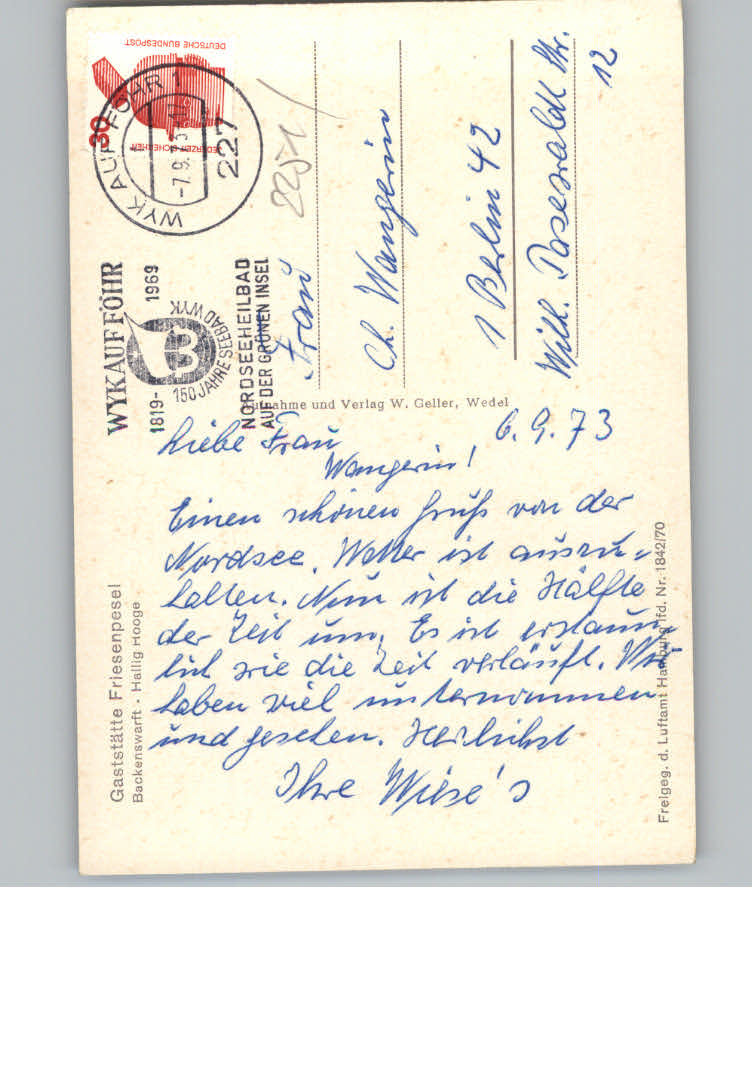 DEUTSCHE BUNDESPOST
30
JEDERZEIT SICHERHEIT
WYK AUF FÖHR 1
-7.9.73
227
WYK AUF FÖHR
1819-1969
150 JAHRE SEEBAD WYK
NORDSEEHEILBAD
AUF DER GRÜNEN INSEL
2251
Frau
Ch. Wangerin
1 Berlin 42
Wilh. Pasewaldt Str.
12
Aufnahme und Verlag W. Geller, Wedel
6.9.73
Liebe Frau
Wangerin!
Einen schönen Gruß von der
Nordsee. Wetter ist auszu-
halten. Nun ist die Hälfte
der Zeit um. Es ist erstaun-
lich wie die Zeit verläuft. Wir
haben viel unternommen
und gesehen. Herzlichst
Ihre Wiese's
Gaststätte Friesenpesel
Backenswarft · Hallig Hooge
Freigeg. d. Luftamt Hamburg lfd. Nr. 1842/70